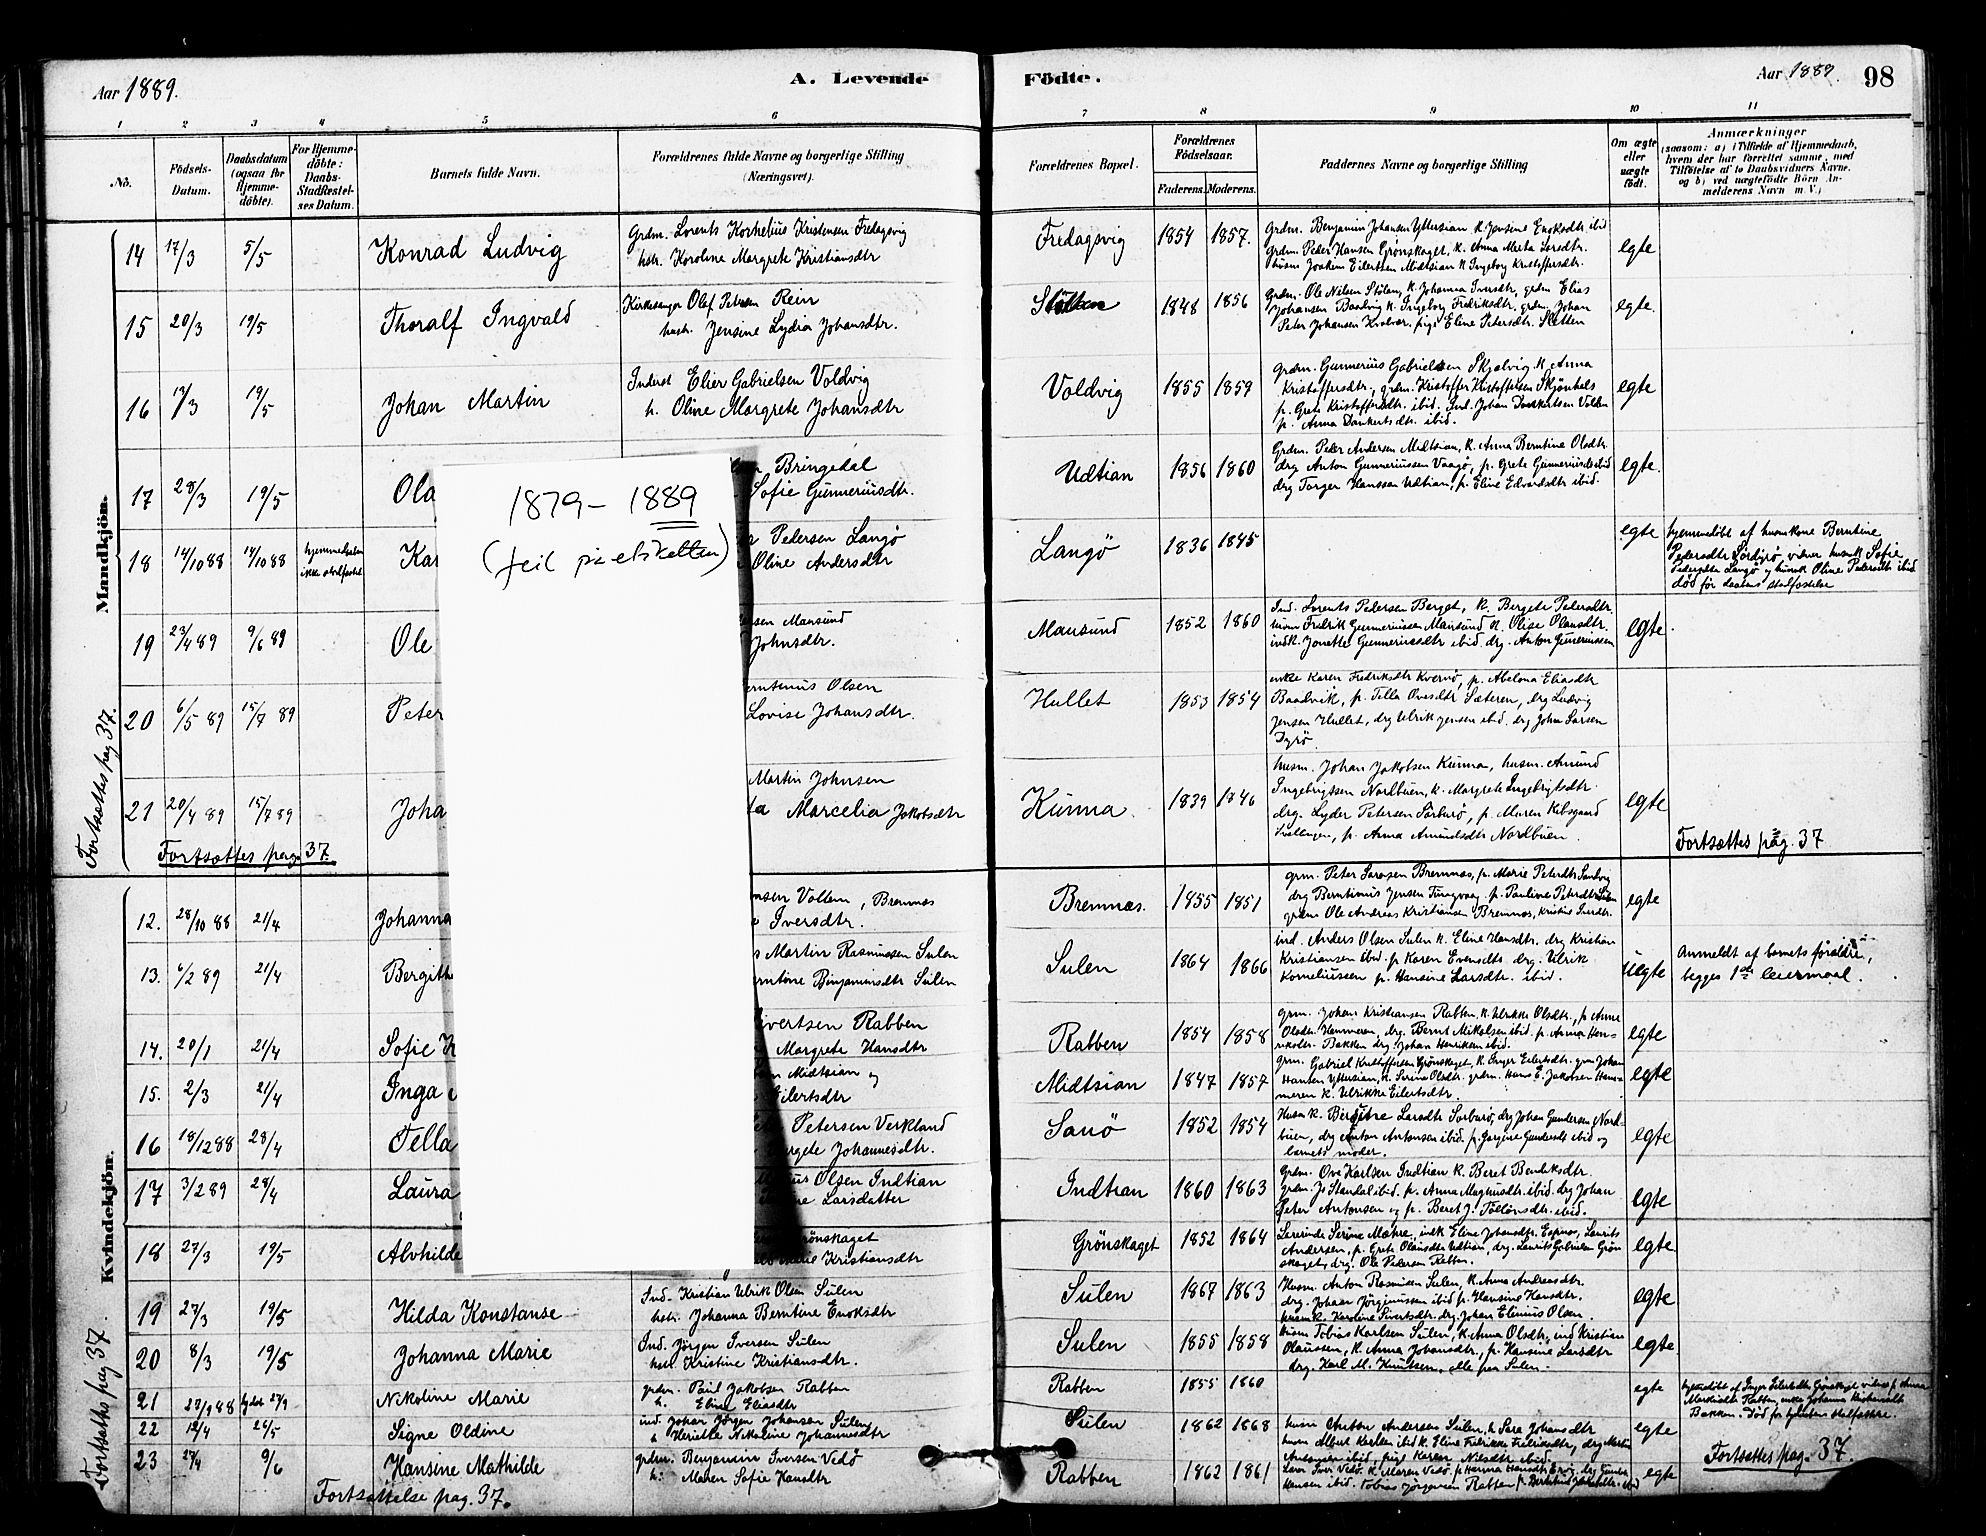 Aar 1889.
A. Levende
Födte.
Aar 1889.
98
1 2 3 4 5 6 7 8 9 10 11
No.
Födsels-Datum.
Daabsdatum (ogsaa for Hjemmedöbte).
For Hjemmedöbte: Daabs-Stadfæstelses Datum.
Barnets fulde Navn.
Forældrenes fulde Navne og borgerlige Stilling (Næringsvei).
Forældrenes Bopæl.
Forældrenes Födselsaar.
Faderens. Moderens.
Faddernes Navne og borgerlige Stilling
Om ægte eller uægte födt.
Anmærkninger
(saasom: a) i Tilfælde af Hjemmedaab, hvem der har forrettet samme, med Tilföielse af to Daabsvidners Navne, og b) ved uægtefödte Börn Anmelderens Navn m. V.)
Mandkjön.
Fortsættes pag 37.
14 17/3 5/5 Konrad Ludvig
Grdm. Lorents Kornelius Kristensen Fredagsvig
hstr. Karoline Margrete Kristiansdtr
Fredagsvig 1854 1857.
Grdm. Benjamin Johansen Yttersian K. Jensine Enoksdtr ibid
Grdm. Peder Hansen Grönskaget, K. Anna Marta
husm Joakim Eilertsen Midtsian K Ingeborg Kristoffersdtr.
egte
15 20/3 19/5 Thoralf Ingvald
Kirkesanger Olaf Petersen Rein
hustr. Jensine Lydia Johansdtr.
1848 1856
Grdm. Ole Nilsen Stölan, K. Johanna Iversdtr, grdm Elias
Johansen Baadvig K. Ingeborg Fredriksdtr. grdm. Johan
Peter Johansen Kvalvær. pige Eline Petersdtr. Sletten
egte.
16 17/3 19/5 Johan Martin
Inderst Elier Gabrielsen Voldvig
h. Oline Margrete Johansdtr
Voldvig 1855 1859
grdm. Gunnerius Gabrielsen Skjælvig K. Anna
Kristoffersdtr, grdm. Kristoffer Kristoffersen
p. Grete Kristoffersdtr ibid. Ind. Johan Dankertsen
p. Anna Dankertsdtr ibid.
egte
17 28/3 19/5 Ola
Bringedal
Sofie Gunneriusdtr.
Udtian 1856 1860
Grdm. Peder Andersen Midtsian, K. Anna Berntine Olsdtr.
drg Anton Gunneriussen Vaagö, p. Grete Gunneriusdtr ibid
drg Torger Hanssen Udtian, p. Eline Edvardsdtr ibid.
egte.
1879 - 1889
(feil på etiketten)
18 14/10 88 14/10 88 hjemmedaaben ikke stadfæstet Kar
Pedersen Langö
Oline Andersdtr
Langö 1836 1845 egte
hjemmedöbt af huuskone Berntine
Pedersdtr vidner husmk Sofie
Pedersdtr Langö og husmk Oline Pedersdtr ibid
död för daabens stadfæstelse
19 23/4 89 9/6 89 Ole
Mausund
Johnsdtr.
Mausund 1852 1860
Ind. Lorents Pedersen Berget, K. Bergete Pedersdtr.
husm Fredrik Gunneriussen Mausund K. Olise Olausdtr.
indk. Jonette Gunneriusdtr ibid drg. Anton Gunneriussen
egte
20 6/5 89 15/7 89 Peter
Berntinus Olsen
Lovise Johansdtr.
Hullet 1853 1854
enke Karen Fredriksdtr Kvervö, p. Abelona Eliasdtr
Baadvik, p. Tella Ovesdtr Sæteren, drg Ludvig
Jensen Hullet, drg Ulrik Jensen ibid. drg John Larsen
Dyrö.
21 20/4 89 15/7 89 Joha
Martin Johnsen
Marcelia Jakobsdtr
Kunna. 1839 1746
husm. Johan Jakobsen Kunna, husm. Amund
Ingebrigtsen Nordbuen, K. Margrete Ingebrigtsdtr.
drg. Lyder Petersen Sörburö, p. Maren Kibsgaard
p. Anna Amundsdtr Nordbuen.
egte
Fortsættes pag. 37.
Fortsættes pag. 37
Kvindekjön.
Fortsættes pag 37.
12. 28/10 88 21/4 Johanna
Vollem, Bremnes
Iversdtr.
Bremnes. 1855 1851
grm. Peter Larssen Bremnes, p. Marie Petersdtr
drg Berntinus Jensen Tungvaag. p. Pauline Petersdtr
grdm Ole Andreas Kristiansen Bremnes, Kristine Iversdtr.
egte
13. 6/2 89 21/4 Bergitha
Martin Rasmussen Sulen
Berntine Binjaminsdtr Sulen
Sulen 1864 1866
ind. Anders Olsen Sulen K. Eline Hansdtr. drg Kristian
Kristiansen ibid p. Karen Evensdtr. drg. Ulrik
Korneliussen p. Hansine Larsdtr. ibid.
uegte
Anmeldt af barnets forældre,
begges 1ste leiermaal.
14. 20/1 21/4 Sofie
Sivertsen Rabben
Margrete Hansdtr
Rabben 1854 1858
grm. Johan Kristiansen Rabben. K. Ulrikke Olsdtr., p Anne
Olsdtr. Hammeren, drg. Bernt Mikalsen ibid. p. Anna Hen-
riksdtr. Bakken drg. Johan Henriksen ibid.
egte
15. 2/3 21/4 Inga
Midtsian og
Eilertsdtr
Midtsian 1847 1857
grm. Gabriel Kristoffersen Grönskaget, K. Inger Eilertsdtr. grm Johan
Hansen Yttersian, K. Serine Olsdtr. grdm. Hans E. Jakobsen Ham-
meren K. Ulrikke Eilertsdtr.
egte
16 18/12 88 28/4 Tella
Petersen Verkland
Johannesdtr.
Sanö 1852 1854
Husm K. Bergitte Larsdtr Sorburö, drg Johan Gundersen Nord-
buen, drg Anton Antonsen ibid. p. Jørgine Gundersdtr ibid og
barnets moder.
egte
17 3/2 89 28/4 Laura
Olsen Indtian
Larsdatter
Indtian 1860 1863
Grdm. Ove Karlsen Indtian K. Beret Bendiksdtr.
grdm. Js Standal ibid. p. Anna Magnusdtr. ibid. drg Johan
Peter Antonsen og p. Beret J. ibid.
egte
18 27/3 19/5 Alvhilde
Grönskaget
Marie Kristiansdtr
Grönskaget 1852 1864
Lærerinde Serine Mækre, indk Eline Johansdtr. Espnes, Laurits
Andersen, p. Grete Olausdtr Udtian, drg. Laurits Gabrielsen Grön-
skaget, drg. Ole Pedersen
egte
19 27/3 19/5 Hilda Konstanse
Ind. Kristian Ulrik Olsen Sulen
hstr. Johanna Berntine Enoksdtr
Sulen 1867 1863
Husm. Anton Rasmussen Sulen, K. Anna Andreasdtr.
drg. Johan Jörginussen ibid p. Hansine Hansdtr.
husmk. Karoline Sivertsdtr. drg. Johan Elinius Olsen.
egte
20 8/3 19/5 Johanna Marie
Ind. Jörgen Iversen Sulen
hstr. Kristine Kristiansdtr.
Sulen 1855 1858
husm Tobias Karlsen Sulen, K. Anna Olsdtr, ind Kristian
Olaussen, K. Anna Johansdtr, p. Hansine Larsdtr
drg. Karl M. Knutsen. alle paa Sulen.
egte
21 22/9 88 27/9 Nikoline Marie
grdm. Paul Jakobsen Rabben
h. Eline Eliasdtr
Rabben 1855 1860 egte
hjemmedöbt af Inger Eilertsdtr Grönskaget vidner p. Anna
Rabben, enke Johanna
Bakken. Död för
22 12/4 26/5 Signe Oldine
ind. Johan Jörgen Johansen Sulen
h Henriette Nikoline Johannesdtr
Sulen 1862 1868
husm Anton Andersen Sulen, h. Sara Johansdtr
husm Albert Karlsen ibid K. Eline Fredrikke Fredriksdtr, drg Martin
Antonsen ibid, pige Karen Nilsdtr ibid.
egte
23 27/4 9/6 Hansine Mathilde
grdm. Benjamin Iversen Vedö
h. Maren Sofie Hansdtr
Rabben 1862 1861
Iver Vedö K. Maren Vedö, p Hanna Hansdtr
Hansen ibid. Tobias Jörgensen Rabben
egte
Fortsættes pag. 37.
Fortsættelse pag. 37.